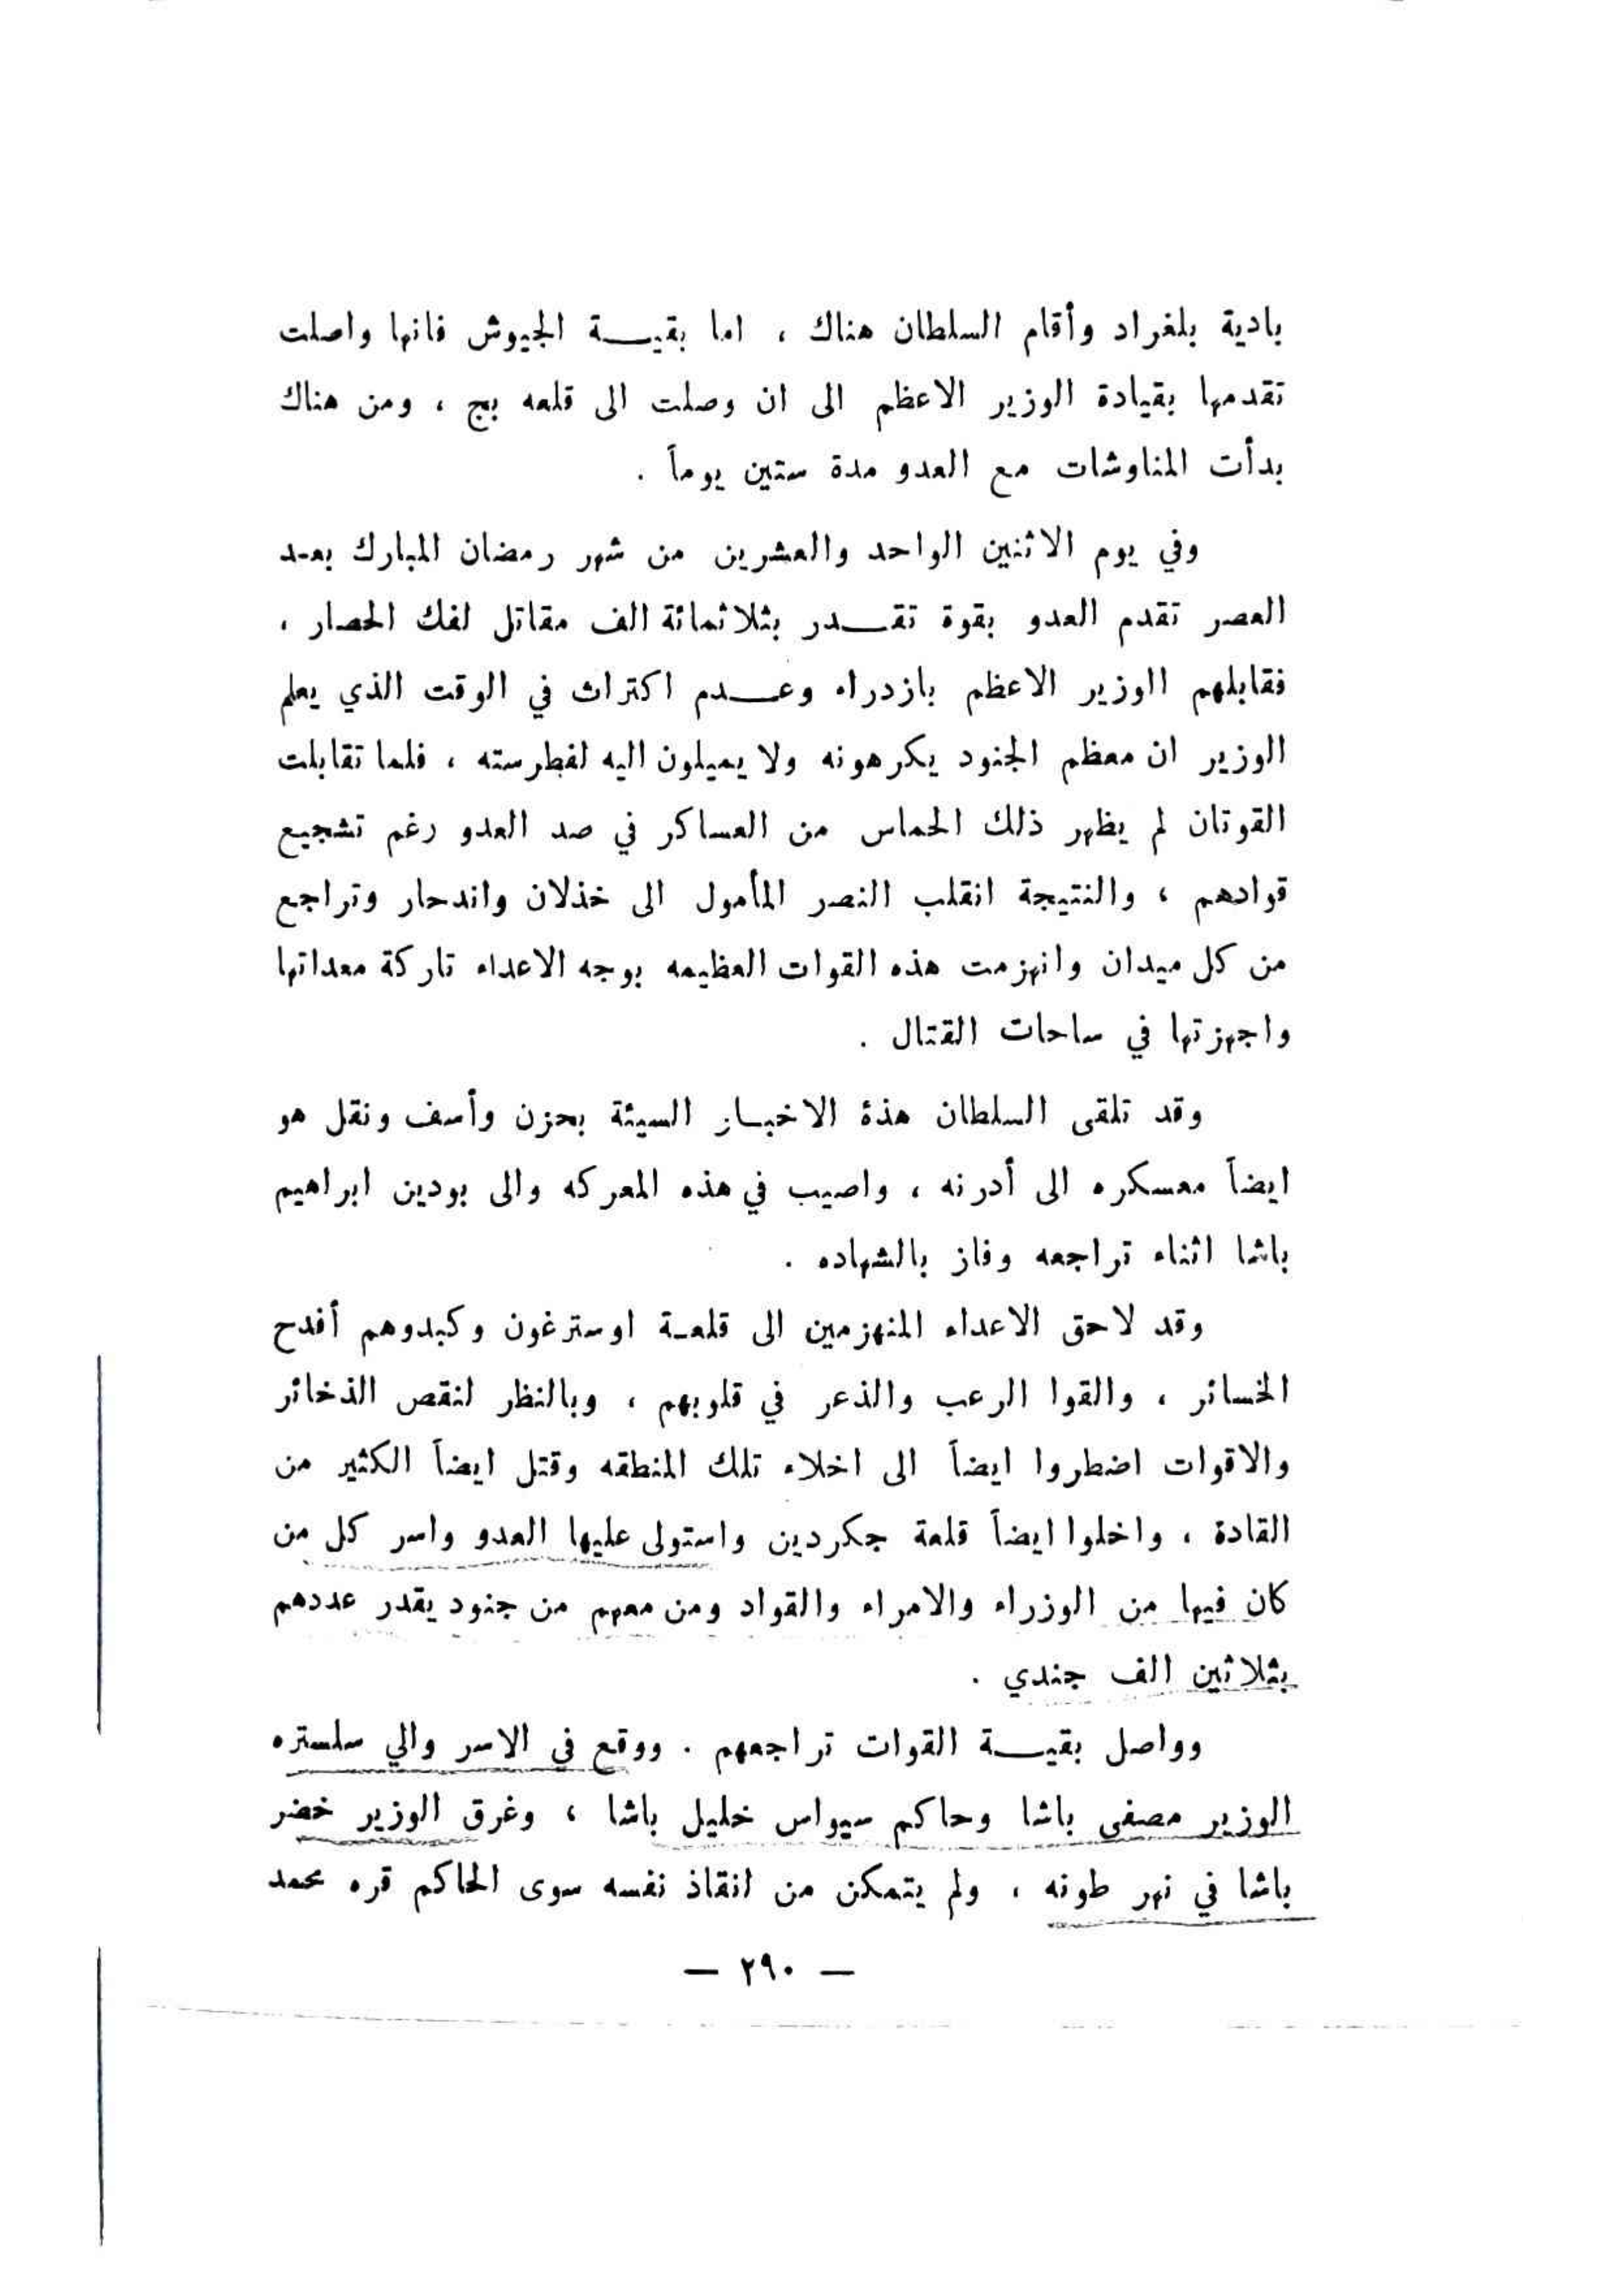 بادية بلغراد وأقام السلطان هناك ، اما بقيـــة الجيوش فانها واصلت
تقدمها بقيادة الوزير الاعظم الى ان وصلت الى قلعه بج ، ومن هناك
بدأت المناوشات مع العدو مدة ستين يوماً .
وفي يوم الاثنين الواحد والعشرين من شهر رمضان المبارك بعـد
العصر تقدم العدو بقوة تقـــدر بثلاثمائة الف مقاتل لفك الحصار ،
فقابلهم الوزير الاعظم بازدراء وعـــدم اكتراث في الوقت الذي يعلم
الوزير ان معظم الجنود يكرهونه ولا يميلون اليه لغطرسته ، فلما تقابلت
القوتان لم يظهر ذلك الحماس من العساكر في صد العدو رغم تشجيع
قوادهم ، والنتيجة انقلب النصر المأمول الى خذلان واندحار وتراجع
من كل ميدان وانهزمت هذه القوات العظيمه بوجه الاعداء تاركة معداتها
واجهزتها في ساحات القتال .
وقد تلقى السلطان هذة الاخبـار السيئة بحزن وأسف ونقل هو
ايضاً معسكره الى أدرنه ، واصيب في هذه المعركه والى بودين ابراهيم
باشا اثناء تراجعه وفاز بالشهاده .
وقد لاحق الاعداء المنهزمين الى قلعـة اوسترغون وكبدوهم أفدح
الخسائر ، والقوا الرعب والذعر في قلوبهم ، وبالنظر لنقص الذخائر
والاقوات اضطروا ايضاً الى اخلاء تلك المنطقه وقتل ايضاً الكثير من
القادة ، واخلوا ايضاً قلعة جكردين واستولى عليها العدو واسر كل من
كان فيها من الوزراء والامراء والقواد ومن معهم من جنود يقدر عددهم
بثلاثين الف جندي .
وواصل بقيـــة القوات تراجعهم . ووقع في الاسر والي سلستره
الوزير مصفى باشا وحاكم سيواس خليل باشا ، وغرق الوزير خضر
باشا في نهر طونه ، ولم يتمكن من انقاذ نفسه سوى الحاكم قره محمد
— ٢٩٠ —